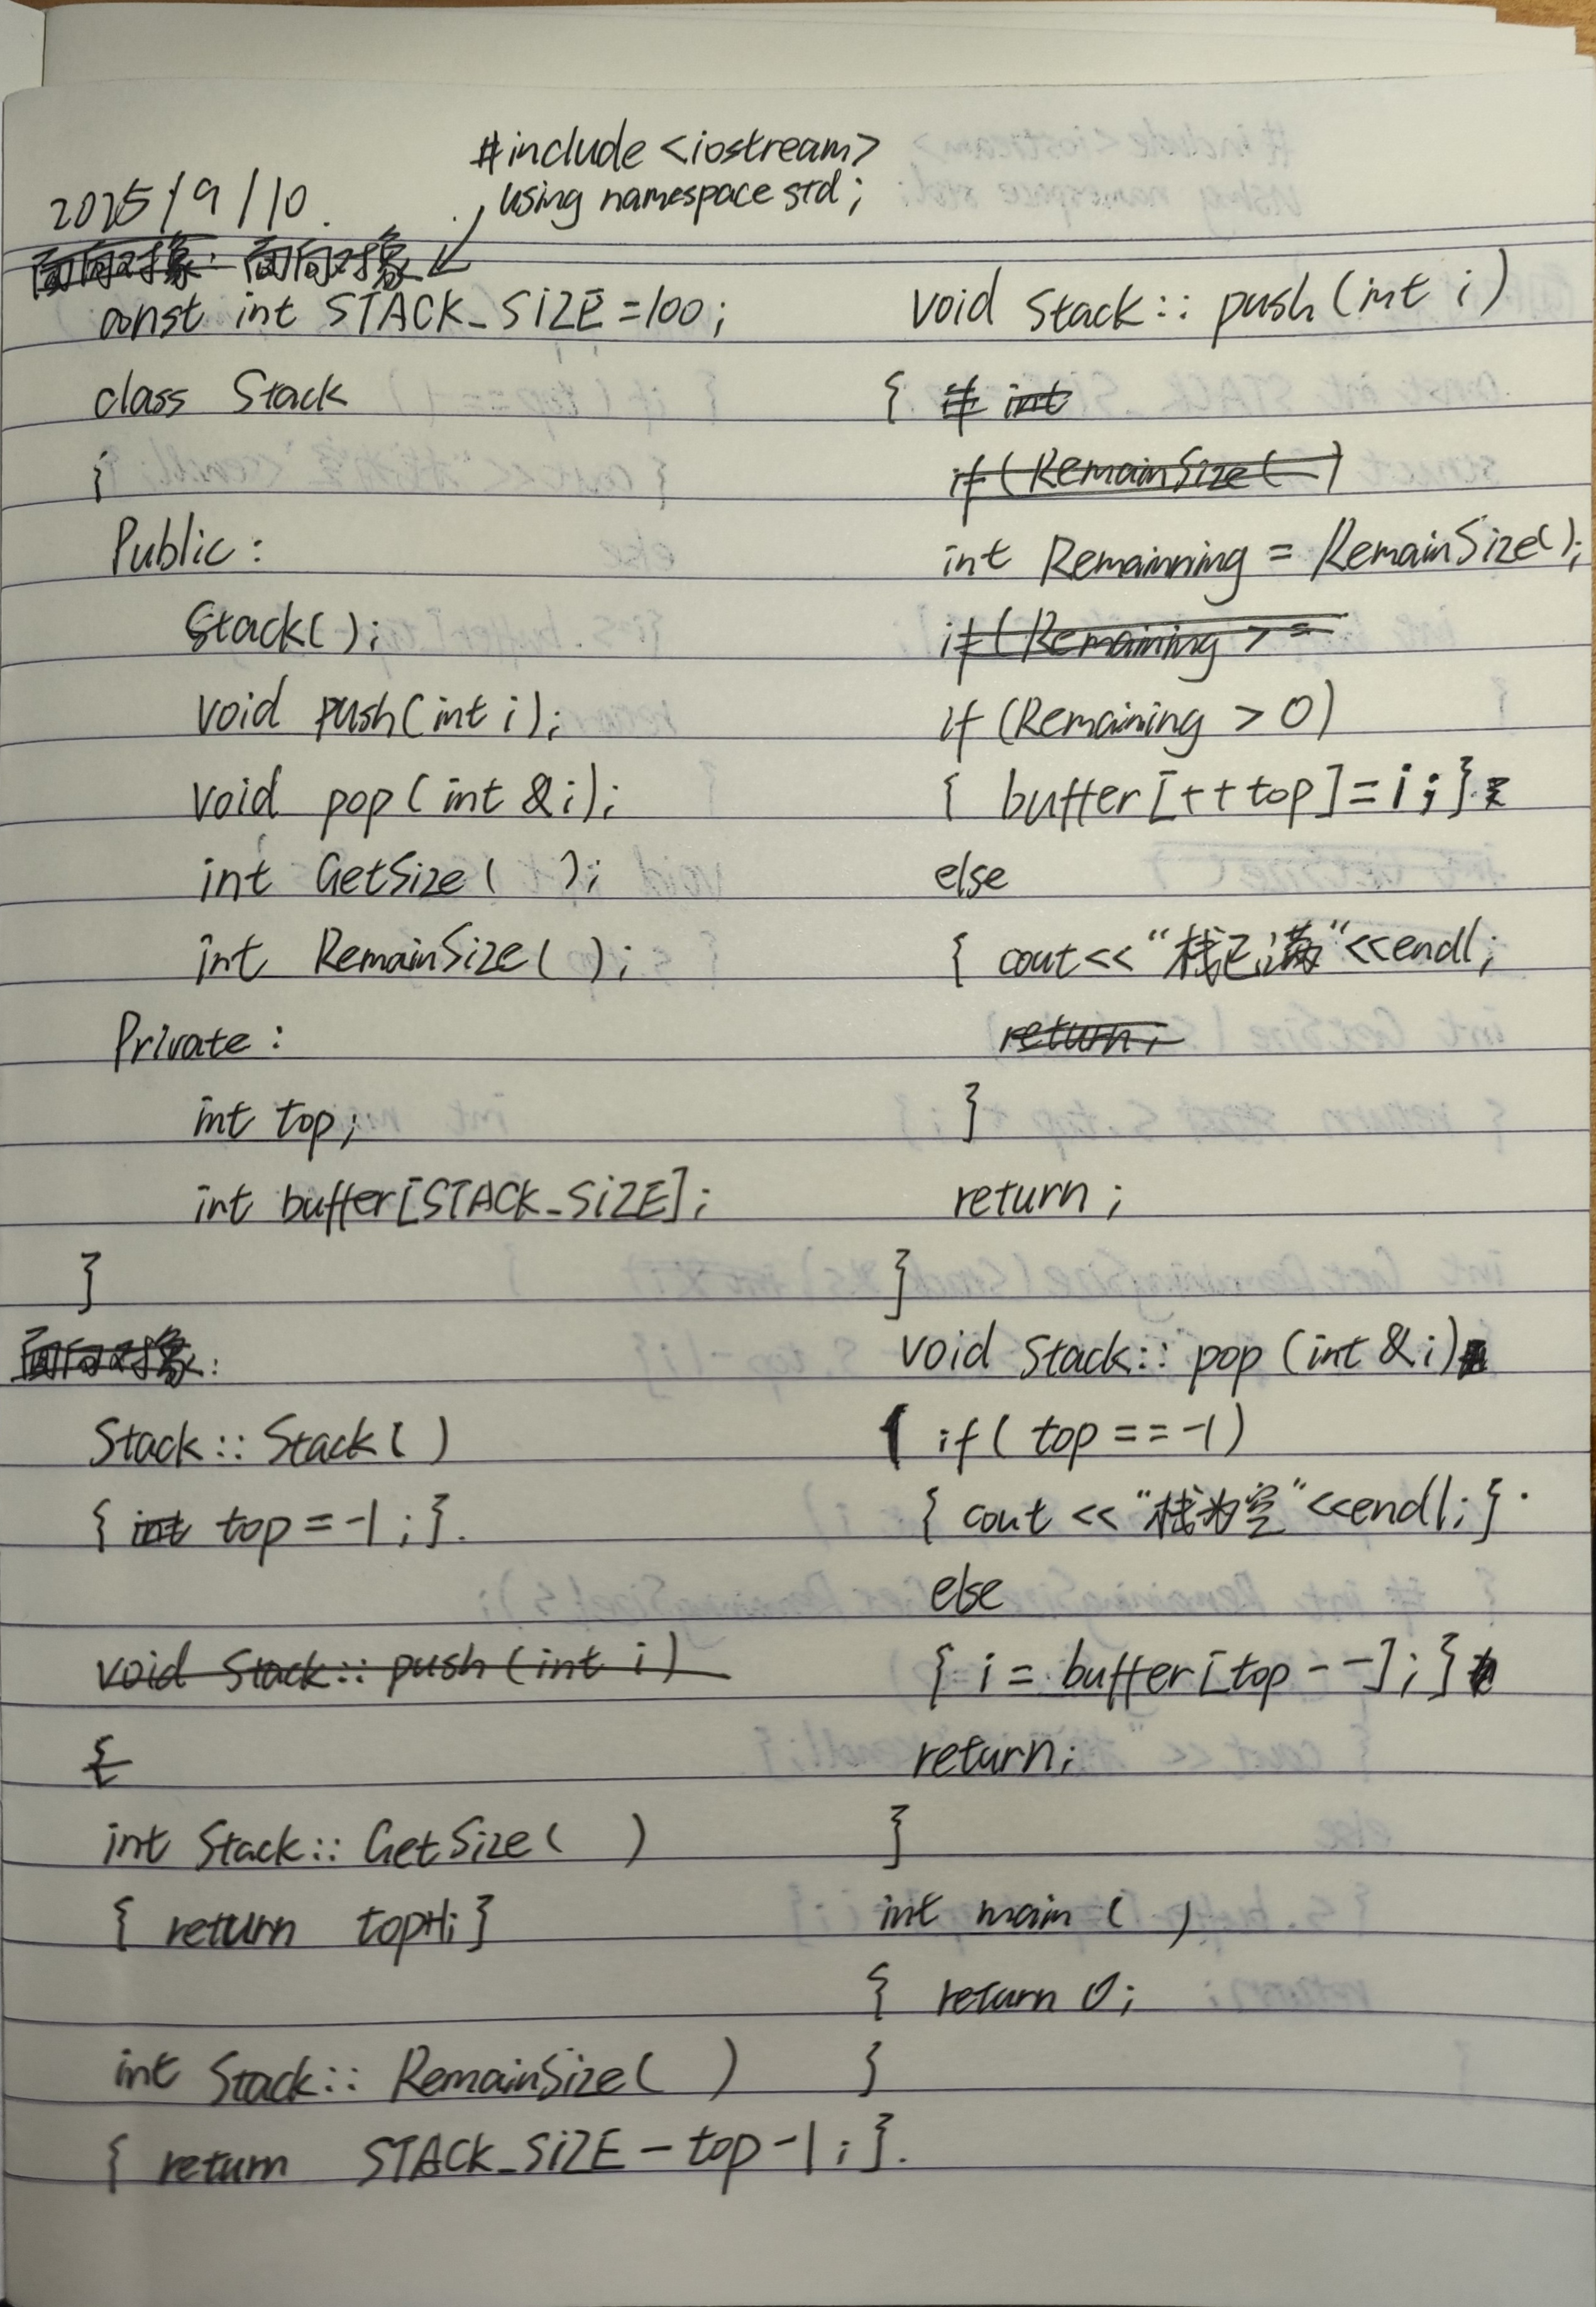 2025/9/10.
#include <iostream>
using namespace std;
面向对象: 面向对象
const int STACK_SIZE=100;
class Stack
{
Public:
Stack();
void push(int i);
void pop(int &i);
int GetSize( );
int RemainSize( );
Private:
int top;
int buffer[STACK_SIZE];
}
面向对象:
Stack::Stack()
{ int top=-1;}.
void Stack::push(int i)
{
int Stack::GetSize( )
{ return top+1;}
int Stack::RemainSize( )
{ return STACK_SIZE-top-1;}.
void Stack::push(int i)
{ if int
if(RemainSize( )
int Remainning = RemainSize();
if(Remaining >=
if(Remaining >0)
{ buffer[++top]=i;}
else
{ cout<<“栈已满”<<endl;
return;
}
return;
}
void Stack::pop(int &i)
{ if(top==-1)
{ cout <<“栈为空”<<endl;}.
else
{ i=buffer[top--];}
return;
}
int main( )
{ return 0;
}